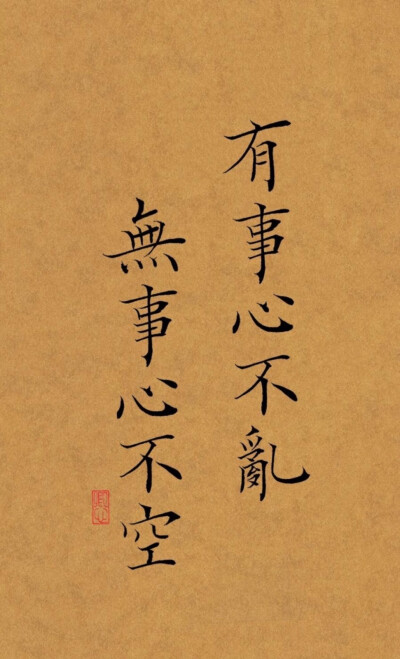 有事心不亂
無事心不空